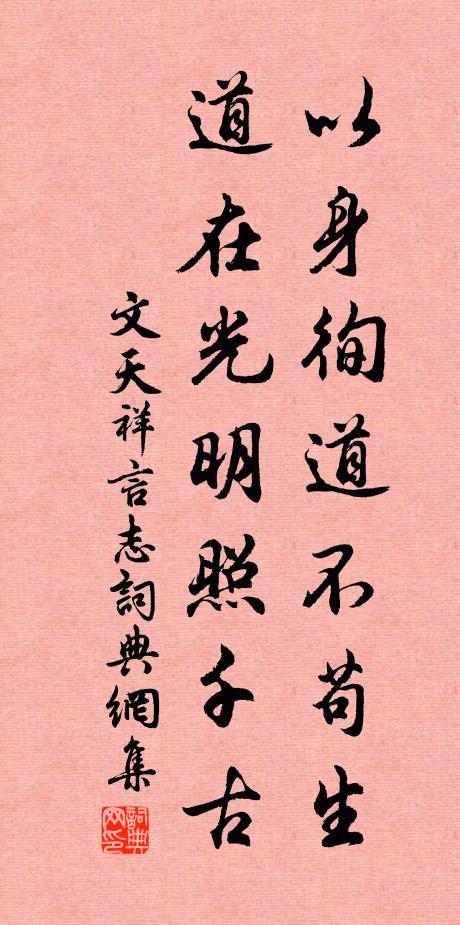 以身徇道不苟生
道在光明照千古
文天祥言志詞典網集
詞典
网印